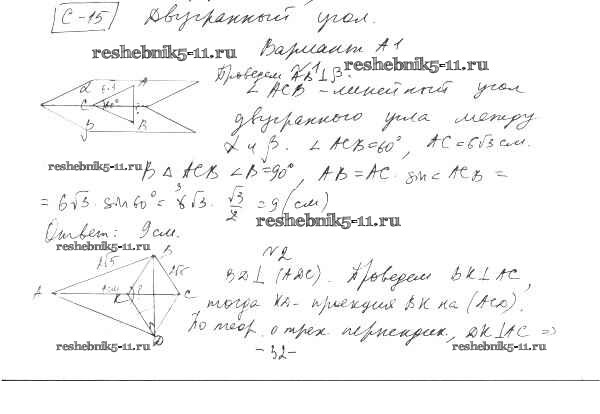 С-15 Двугранный угол.
reshebnik5-11.ru
Вариант А1
№1
Проведем AB ⊥ β.
∠ ACB – линейный угол
двугранного угла между
α и β. ∠ ACB = 60°, AC = 6√3 см.
reshebnik5-11.ru
В Δ ACB ∠B = 90°, AB = AC · sin ∠ACB =
= 6√3 · sin 60° = 6√3 · √3/2 = 9 (см)
reshebnik5-11.ru
Ответ: 9 см.
reshebnik5-11.ru
№2
BD ⊥ (ADC). Проведем BK ⊥ AC,
тогда KD – проекция BK на (ACD).
По теор. о трех перпендик., DK ⊥ AC ⇒
reshebnik5-11.ru
- 32 -
reshebnik5-11.ru
α
6√3
A
C
60°
B
β
B
A
K
C
D